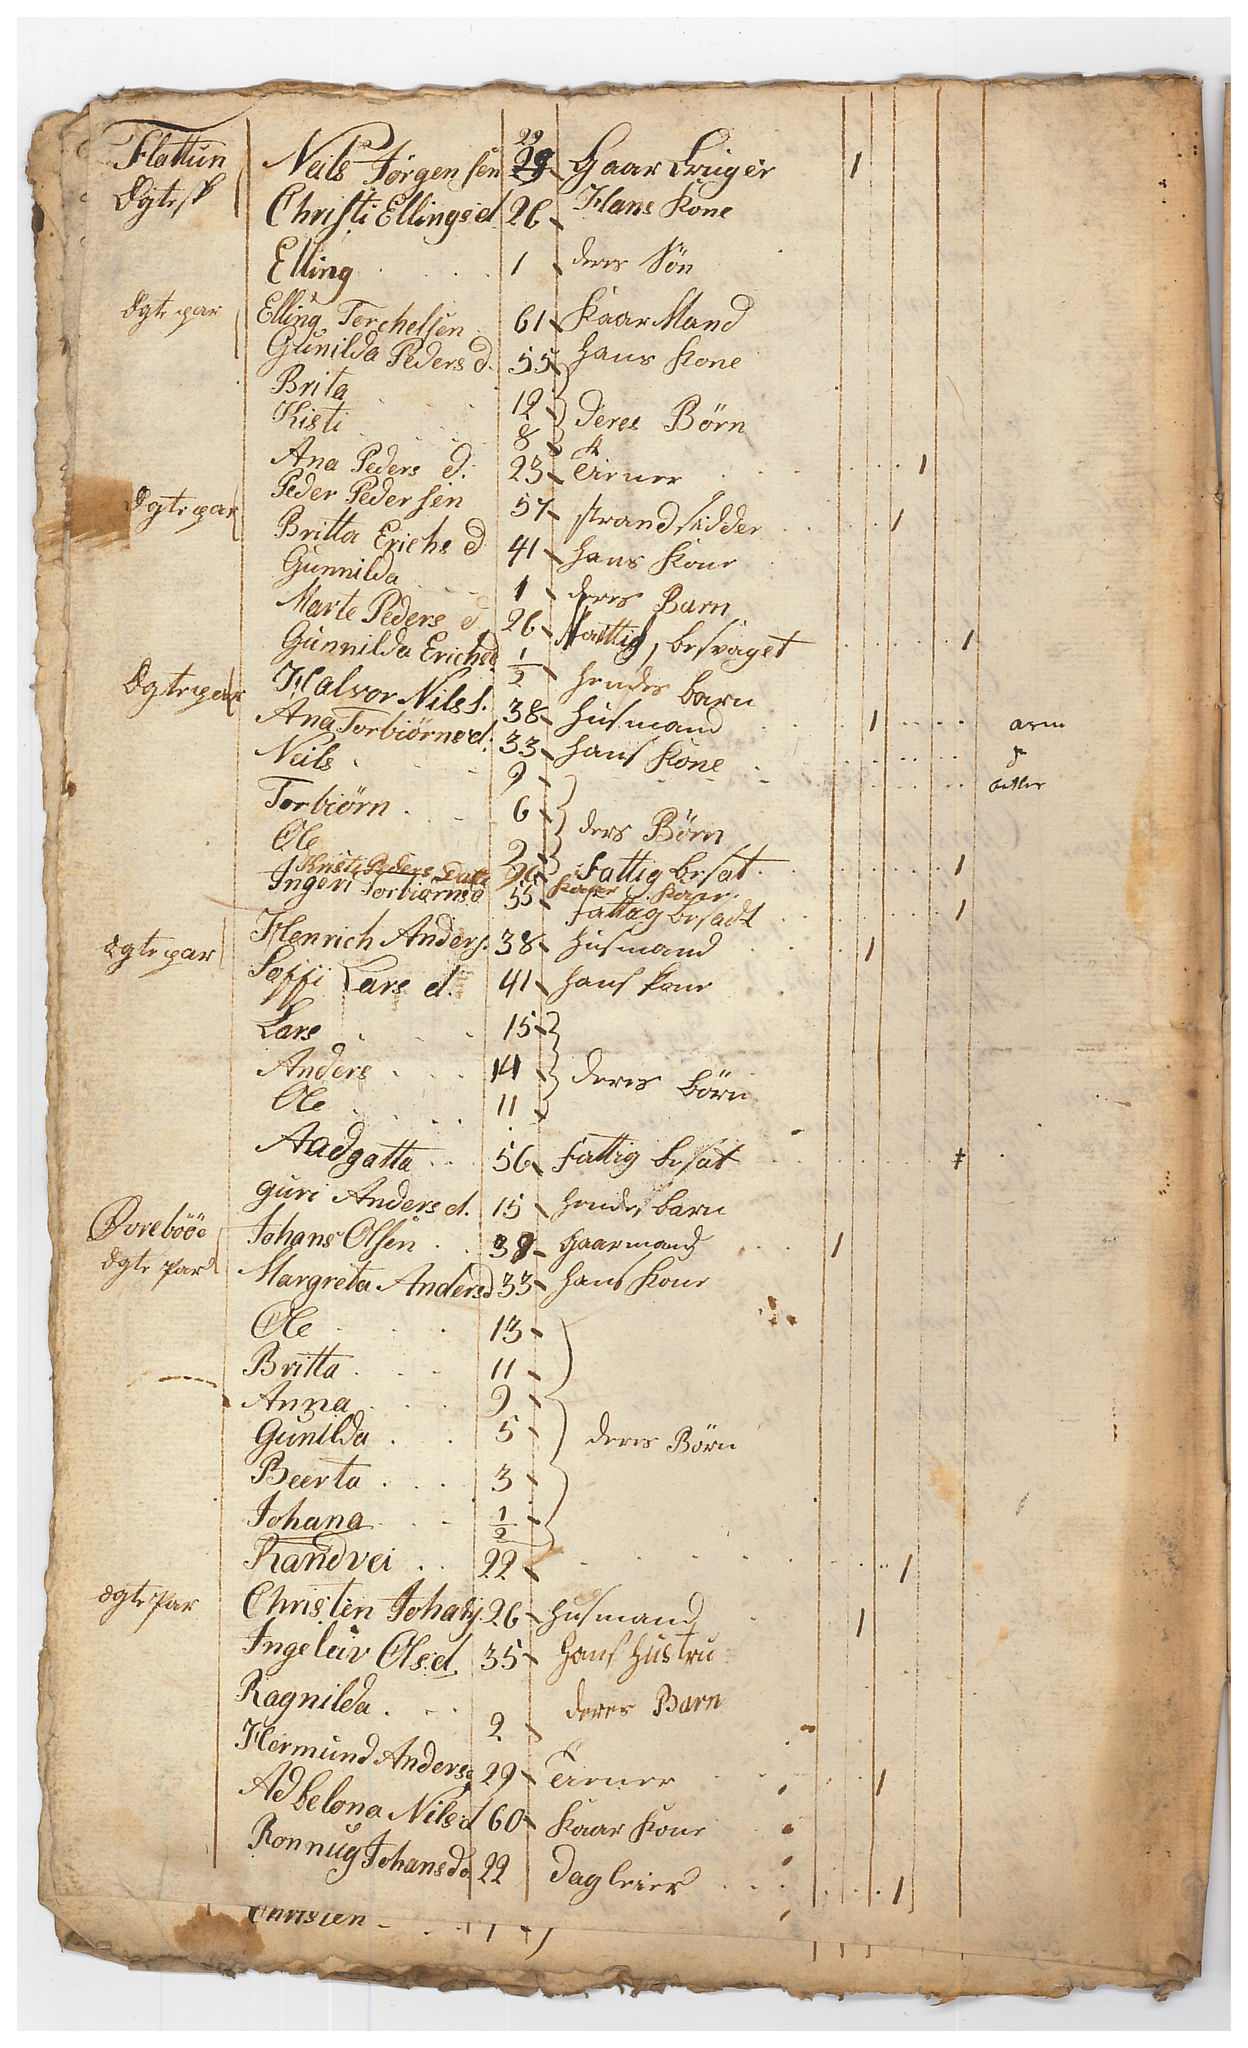 Flattun Neils Jørgensen 29 29 Gaar Bruger 1
Ægtesk Christi Ellingsd. 26 Hans Kone
Elling 1 deres Søn
Ægte par Elling Torchelsen 61 Kaar Mand
Gunilda Peders d. 55 hans Kone
Brita 12
Kisti 8 deres Børn
Ana Peders d. 23 tiener 1
Ægte par Peder Pedersen 57 strandsidder 1
Britta Erichs d 41 hans Kone
Gunnilda 1 deres Barn
Marte Peders d 26 fattig, besvaget 1
Gunnilda Erichsd 1/2 hendes barn
Ægte par Halvor Nilss. 38 husmand 1 arm
Ana Torbiørnsd. 33 hans Kone
Neils 9
Torbiørn 6 ders Børn
Ole 2
Kristi Peders Datter Kaar Kone fattig besat 1
Ingeri Torbiørnsd 55 fattag besadt 1
ægte par Henrich Anders. 38 husmand 1
Soffi Lars d. 41 hans kone
Lars 15
Anders 14 deres børn
Ole 11
Aadgatta 56 fattig besat 1
guri Anders d. 15 hendes barn
Øvrebøöe Johans Olsen 39 gaarmand 1
Ægte Par Margreta Andersd 33 hans Kone
Ole 13
Britta 11
Anna 9
Gunilda 5 deres Børn
Beerta 3
Johana 1/2
Randvei 22 1
ægte Par Christen Johans. 26 husmand 1
Ingeleiv Ols.d. 35 hans Hustru
Ragnilda 2 deres Barn
Hermund Anders. 29 tiener 1
Adselona Nilsd 60 Kaar Kone
Ronnug Johansda 22 dagleier 1
Christen